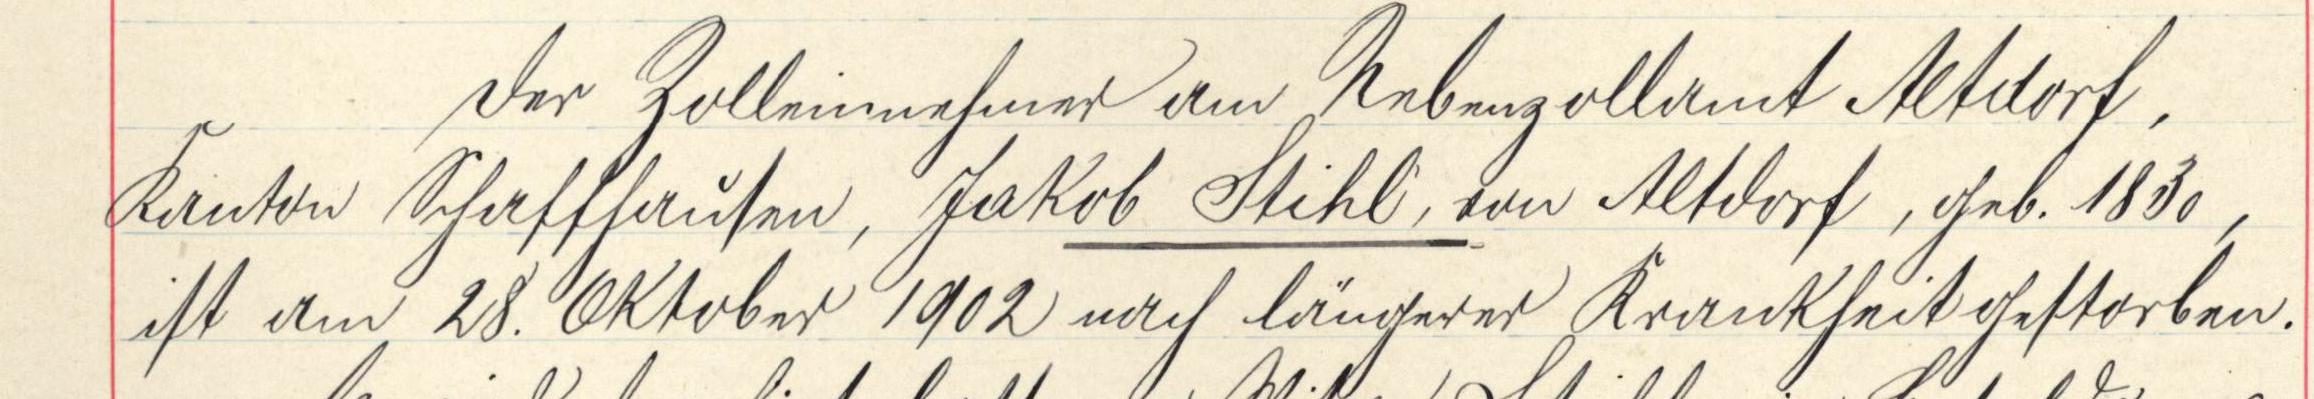 Der Zolleinnehmer am Nebenzollamt Altdorf,
Kanton Schaffhausen, Jakob Stihl, von Altdorf, geb. 1830,
ist am 28. Oktober 1902 nach längerer Krankheit gestorben.